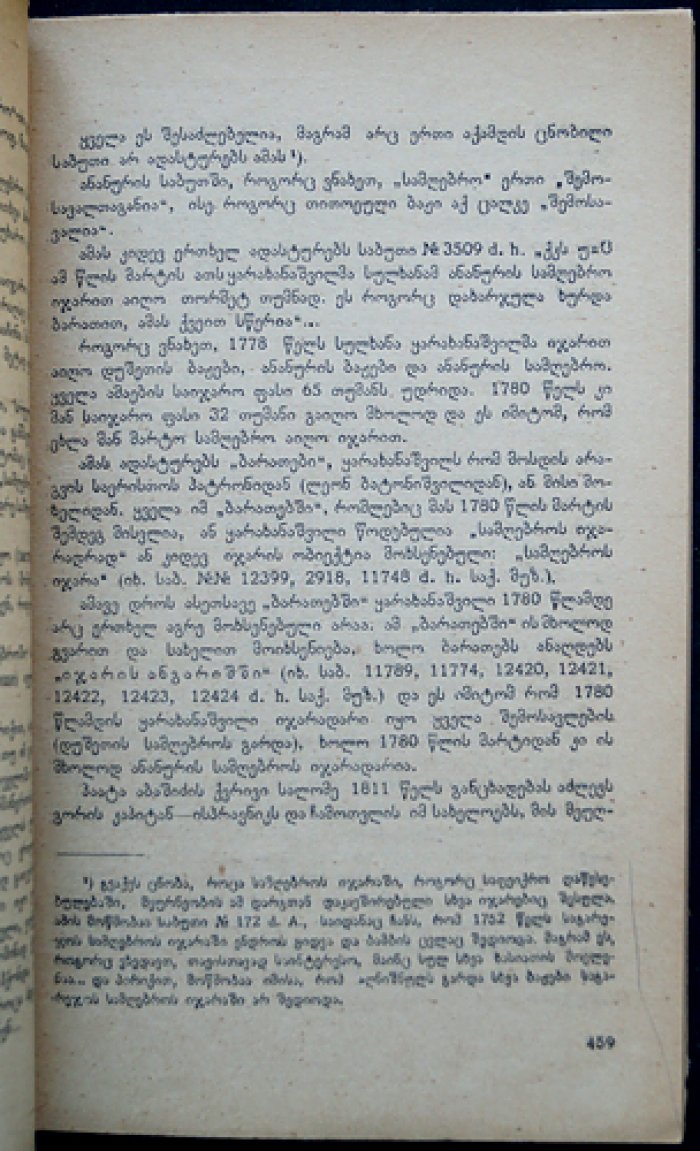 ყველა ეს შესაძლებელია, მაგრამ არც ერთი აქამდის ცნობილი
საბუთი არ ადასტურებს ამას ¹).
ანანურის საბუთში, როგორც ვნახეთ, „სამღებრო“ ერთი „შემო-
სავალთაგანია“, ისე როგორც თითოეული ბაჟი აქ ცალკე „შემოსა-
ვალია“.
ამას კიდევ ერთხელ ადასტურებს საბუთი № 3509 d. h. „ქკს
ამ წლის მარტის ათს ყარახანაშვილმა სულხანამ ანანურის სამღებრო
იჯარით აიღო თორმეტ თუმნად. ეს როგორც დახარჯულა ხურდა
ბარათით, ამას ქვეით სწერია“...
როგორც ვნახეთ, 1778 წელს სულხანა ყარახანაშვილმა იჯარით
აიღო დუშეთის ბაჟები, ანანურის ბაჟები და ანანურის სამღებრო.
ყველა ამაების საიჯარო ფასი 65 თუმანს უდრიდა. 1780 წელს კი
მან საიჯარო ფასი 32 თუმანი გაიღო მხოლოდ და ეს იმიტომ, რომ
ეხლა მან მარტო სამღებრო აიღო იჯარით.
ამას ადასტურებს „ბარათები“, ყარახანაშვილს რომ მოსდის არა-
გვის საერისთოს პატრონიდან (ლეონ ბატონიშვილიდან), ან მისი მო-
ხელიდან. ყველა იმ „ბარათებში“, რომლებიც მას 1780 წლის მარტის
შემდეგ მისვლია, ან ყარახანაშვილი წოდებულია „სამღებროს იჯა-
რადრად“ ან კიდევ იჯარის ობიექტია მოხსენებული: „სამღებროს
იჯარა“ (იხ. საბ. №№ 12399, 2918, 11748 d. h. საქ. მუზ.).
ამავე დროს ასეთსავე „ბარათებში“ ყარახანაშვილი 1780 წლამდე
არც ერთხელ აგრე მოხსენებული არაა. ამ „ბარათებში“ ის მხოლოდ
გვარით და სახელით მოიხსენიება, ხოლო ბარათებს ანაღდებს
„იჯარის ანგარიშში“ (იხ. საბ. 11789, 11774, 12420, 12421,
12422, 12423, 12424 d. h. საქ. მუზ.) და ეს იმიტომ რომ 1780
წლამდის ყარახანაშვილი იჯარადარი იყო ყველა შემოსავლების
(დუშეთის სამღებროს გარდა), ხოლო 1780 წლის მარტიდან კი ის
მხოლოდ ანანურის სამღებროს იჯარადარია.
პაატა აბაშიძის ქვრივი სალომე 1811 წელს განცხადებას აძლევს
გორის კაპიტან—ისპრავნიკს და ჩამოთვლის იმ სახელოებს, მის მეუღ-
¹) გვაქვს ცნობა, როცა სამღებროს იჯარაში, როგორც საფიქრო დაწესე-
ბულებაში, მეურნეობის ამ დარგთან დაკავშირებული სხვა იჯარებიც შესულა.
ამის მოწმობაა საბუთი № 172 d. A., საიდანაც ჩანს, რომ 1752 წელს საგარე-
ჯოს სამღებროს იჯარაში ენდროს ყიდვა და ბამბის ცელაც შედიოდა. მაგრამ ეს,
როგორც ვხედავთ, თავისთავად საინტერესო, მაინც სულ სხვა ხასიათის მოვლე-
ნაა... და პირიქით, მოწმობაა იმისა, რომ აღნიშნულს გარდა სხვა ბაჟები საგა-
რეჯოს სამღებროს იჯარაში არ შედიოდა.
459